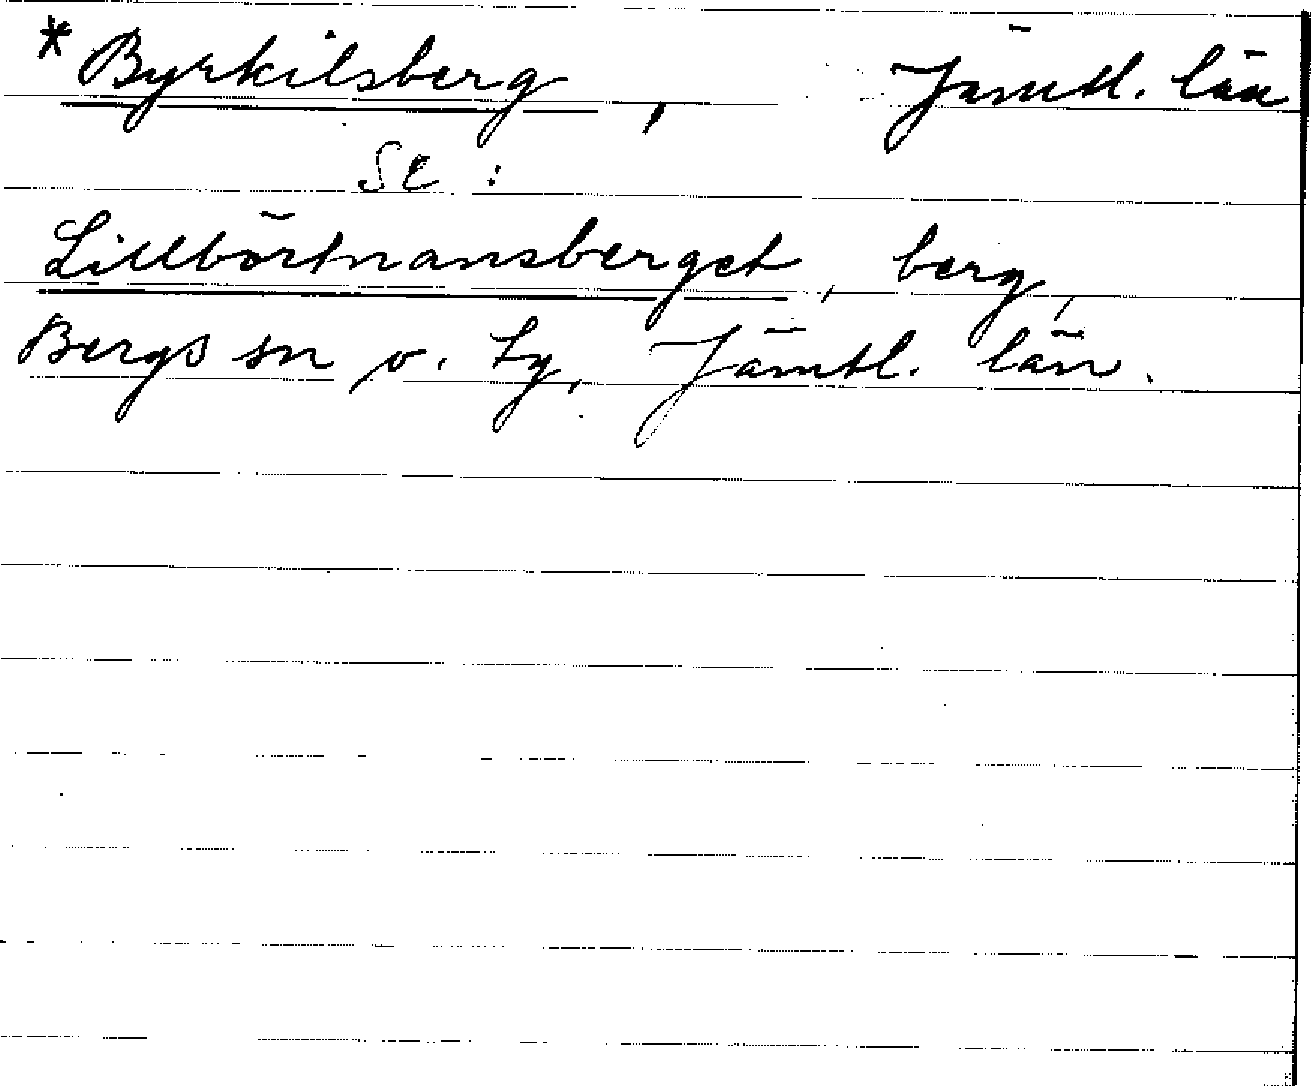 *Byrkilsberg, Jämtl. län
Se:
Lillbörtnansberget, berg,
Bergs sn o. tg, Jämtl. län.